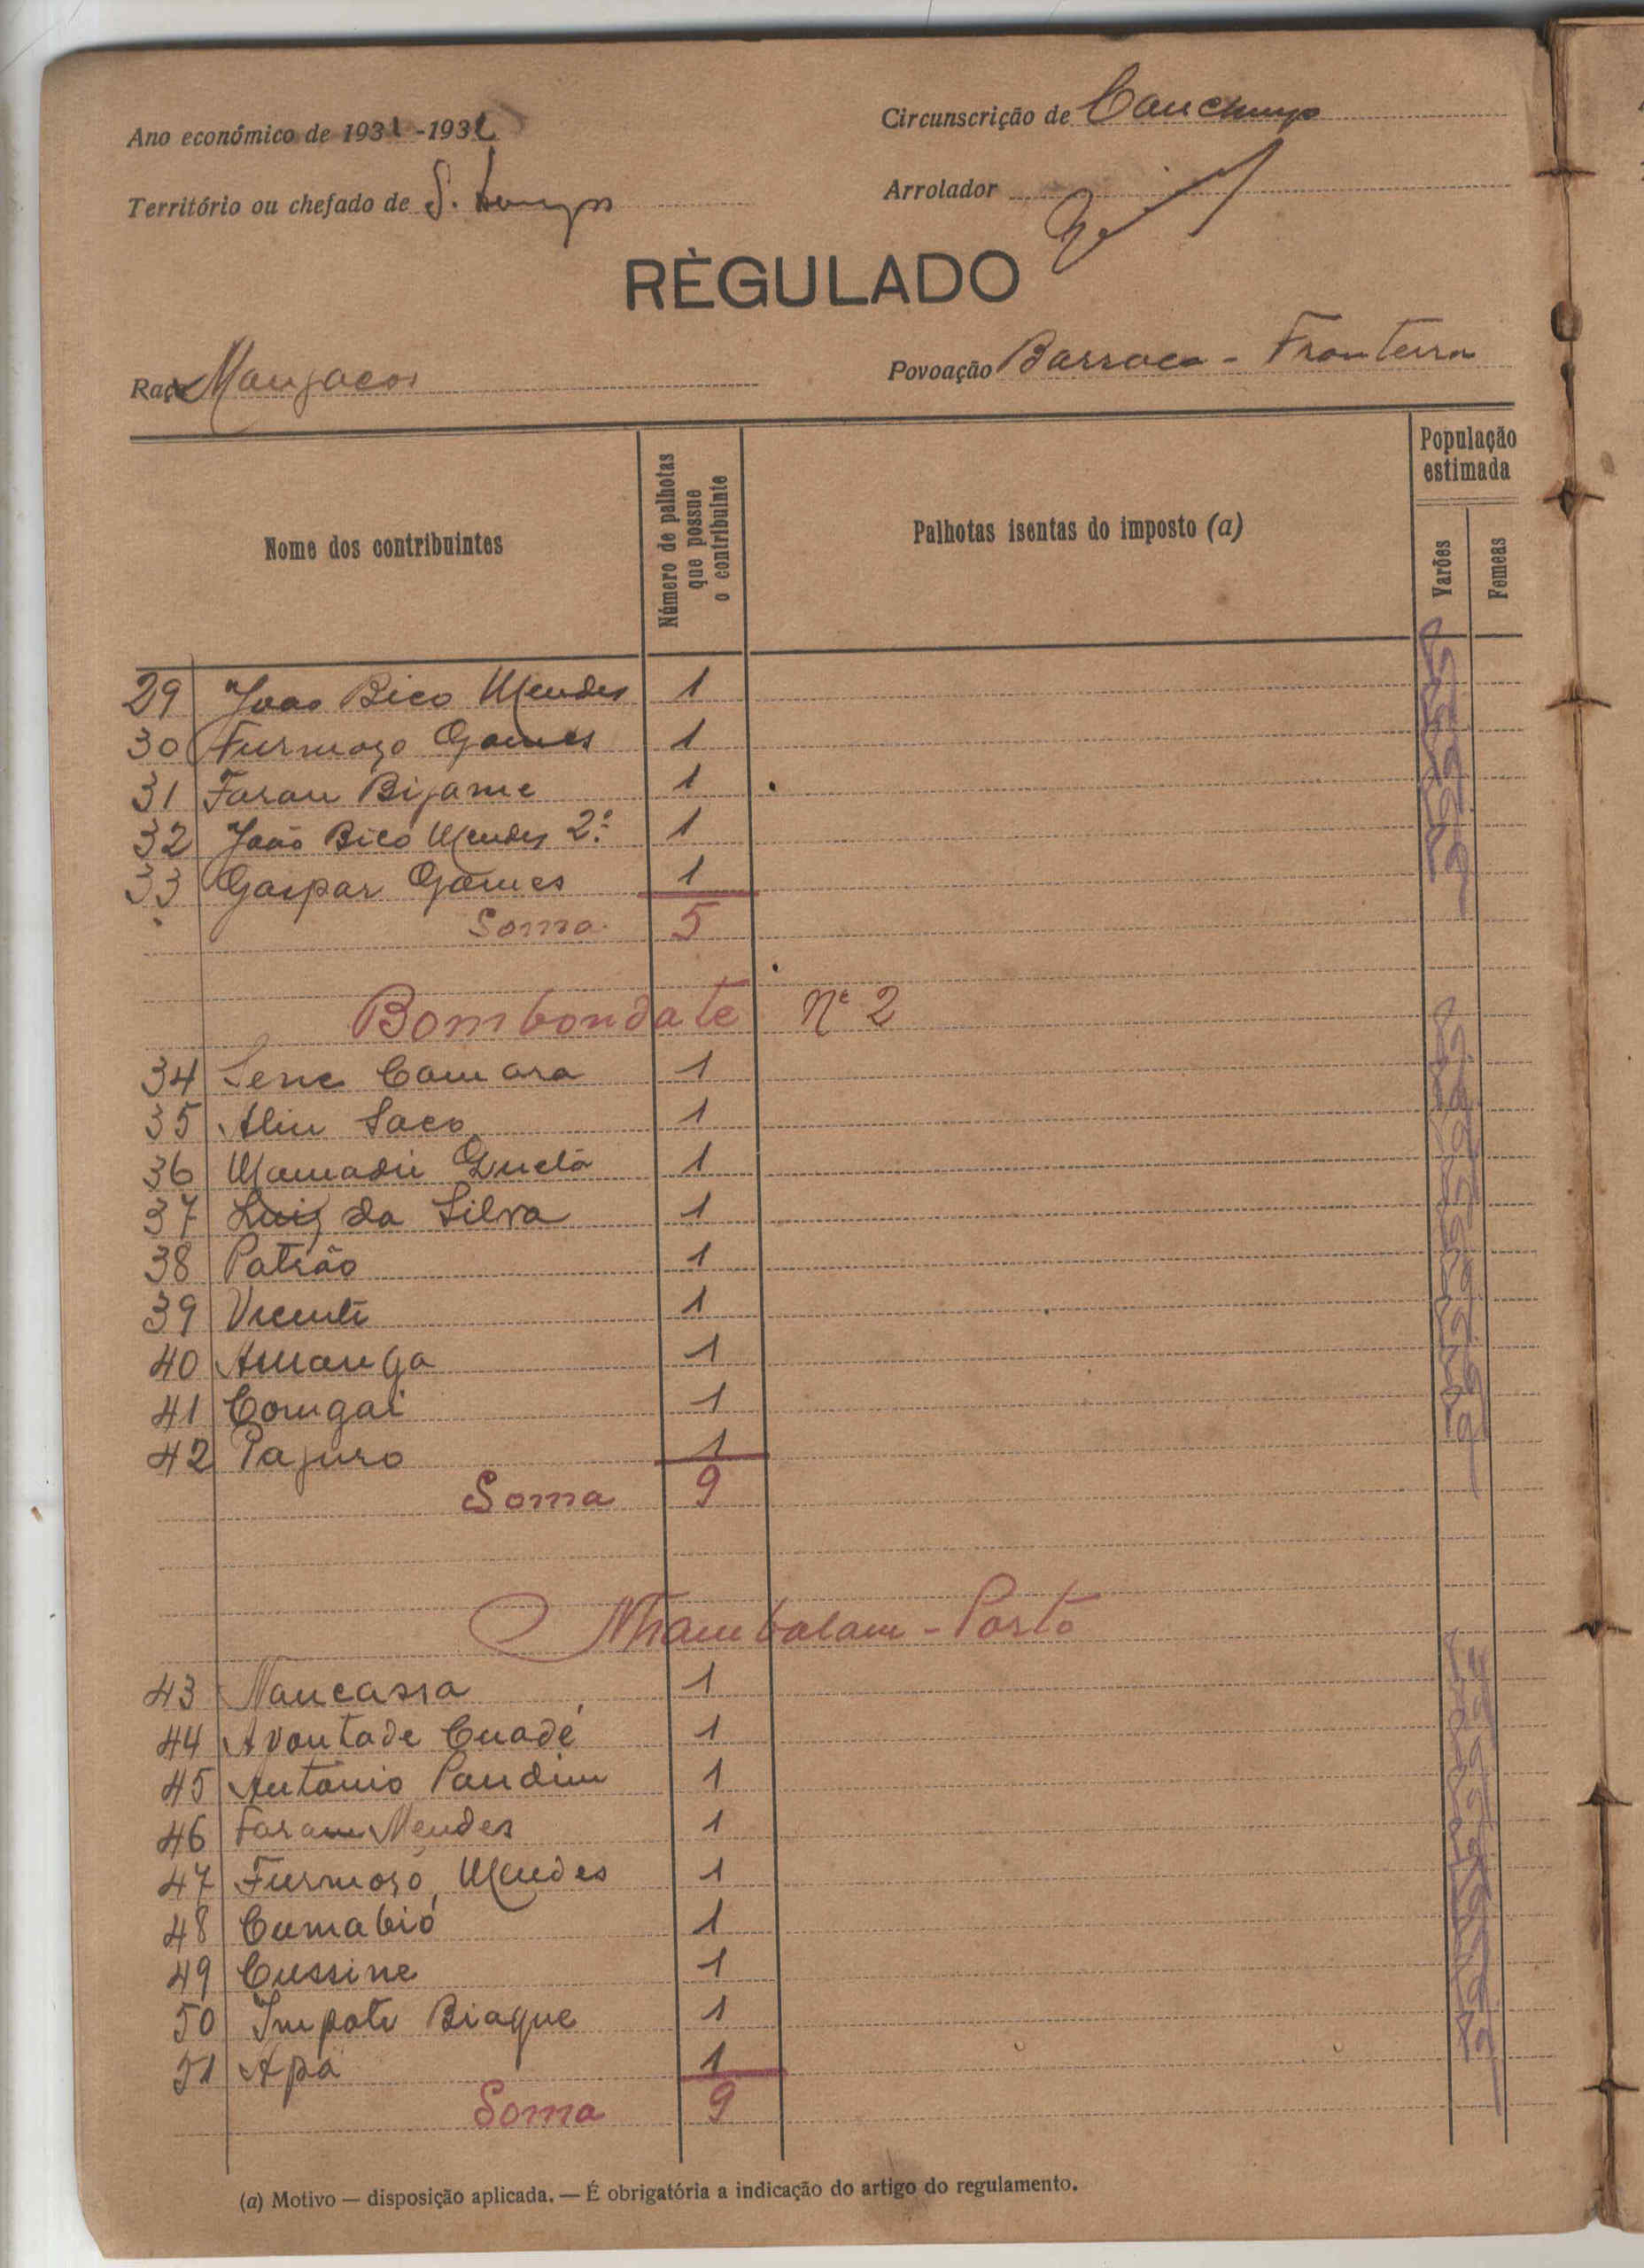 Ano económico de 1931-193
Circunscrição de Canchungo
Território ou chefado de S.
Arrolador
RÈGULADO
Raça Manjacos
Povoação Barraca - Fronteira
Nome dos contribuintes
Número de palhotas que possue o contribuinte
Palhotas isentas do imposto (a)
População estimada
Varões
Femeas
29 João Bico Mendes 1
30 Furmozo Gomes 1
31 Faran Bijame 1
32 João Bico Mendes 2º 1
33 Gaspar Gomes 1
Soma 5
Bombondate Nº 2
34 Sene Camara 1
35 Aliu Saco 1
36 Mamadú 1
37 Luiz da Silva 1
38 Patrão 1
39 Vicente 1
40 Amanga 1
41 Comgai 1
42 Pajuro 1
Soma 9
Nhambalam - Porto
43 Naucassa 1
44 Avontade Cuadé 1
45 António Pandim 1
46 Faram Mendes 1
47 Furmozo Mendes 1
48 Cumabió 1
49 Cussine 1
50 Impate Biaque 1
51 Apa 1
Soma 9
(a) Motivo — disposição aplicada. — É obrigatória a indicação do artigo do regulamento.